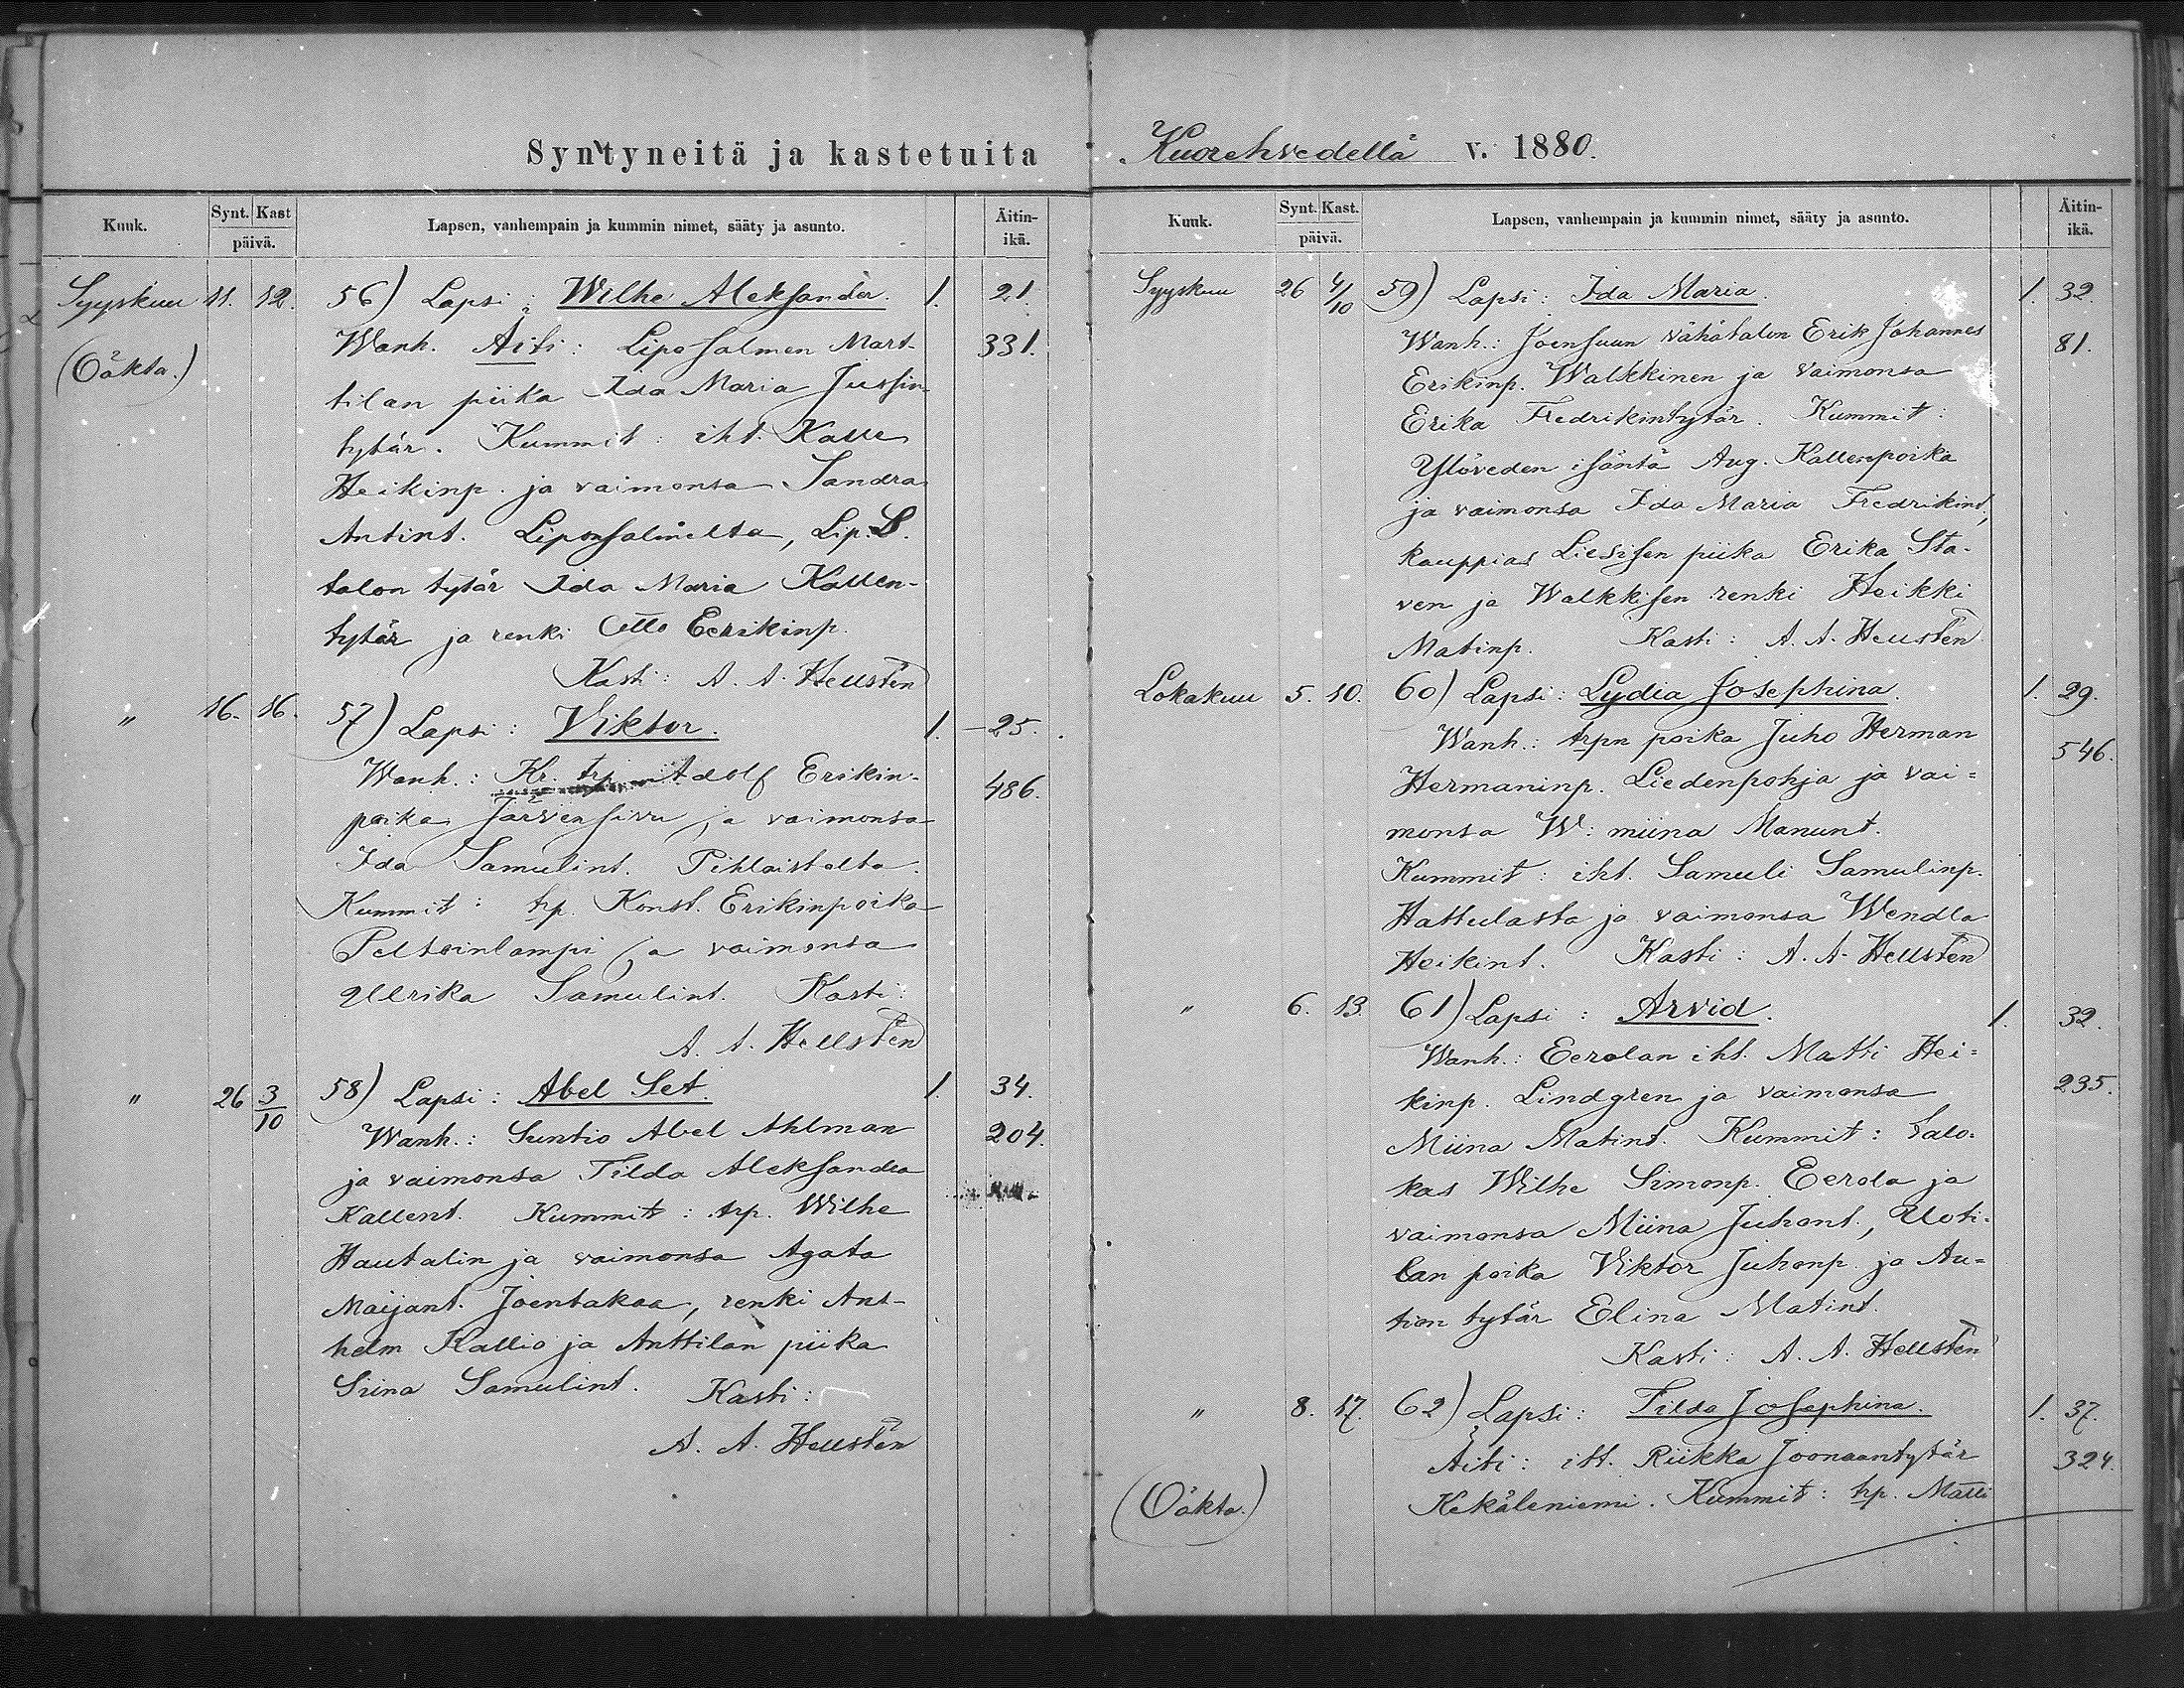 Syntyneitä ja kastetuita
Kuuk. Synt. Kast päivä. Lapsen, vanhempain ja kummin nimet, sääty ja asunto. Äitin-ikä.
Syyskuu 11. 12. 56) Lapsi: Wilhe Aleksander. 1. 21.
Wanh. Äiti: Liposalmen Mart- 331.
(Oäkta.) tilan piika Ida Maria Jussin-
tytär. Kummit: iht. Kalle
Heikinp. ja vaimonsa Sandra
Antint. Liponsalmelta, Lip. S.
talon tytär Ida Maria Kallen-
tytär ja renki Otto Eerikinp.
Kasti: A. A. Hellstén
" 16. 16. 57) Lapsi: Viktor. 1. 25.
Wanh.: Kr. trp. Adolf Erikin- 486.
poika Järvensivu ja vaimonsa
Ida Samulint. Pihlaistolta.
Kummit: trp. Konst. Erikinpoika
Peltoinlampi ja vaimonsa
Ulrika Samulint. Kasti:
A. A. Hellstén
" 26 3/10 58) Lapsi: Abel Set. 1. 34.
Wanh.: Suntio Abel Ahlman 204.
ja vaimonsa Tilda Aleksandra
Kallent. Kummit: trp. Wilhe
Hautalin ja vaimonsa Agata
Maijant. Joentakaa, renki Ans-
helm Kallio ja Anttilan piika
Siina Samulint. Kasti:
A. A. Hellstén
Kuorehvedellä v. 1880.
Kuuk. Synt. Kast. päivä. Lapsen, vanhempain ja kummin nimet, sääty ja asunto. Äitin-ikä.
Syyskuu 26 4/10 59) Lapsi: Ida Maria. 1. 32.
Wanh.: Joensuun vähätalon Erik Johannes 81.
Erikinp. Walkkinen ja vaimonsa
Erika Fredrikintytär. Kummit:
Ylöveden isäntä Aug. Kallenpoika
ja vaimonsa Ida Maria Fredrikint,
kauppias Liesisen piika Erika Sta-
ven ja Walkkisen renki Heikki
Matinp. Kasti: A. A. Hellstén
Lokakuu 5. 10. 60) Lapsi: Lydia Josephina. 1. 29.
Wanh.: trpn poika Juho Herman 546.
Hermaninp. Liedenpohja ja vai=
monsa W: miina Manunt.
Kummit: iht. Samuli Samulinp.
Hattulasta ja vaimonsa Wendla
Heikint. Kasti: A. A. Hellstén
" 6. 13. 61) Lapsi: Arvid. 1. 32.
Wanh.: Eerolan iht. Matti Hei=
kinp. Lindgren ja vaimonsa 235.
Miina Matint. Kummit: talo=
kas Wilhe Simonp. Eerola ja
vaimonsa Miina Juhont., Uoti-
lan poika Viktor Juhonp. ja Au=
tion tytär Elina Matint.
Kasti: A. A. Hellstén
" 8. 17. 62) Lapsi: Tilda Josephina. 1. 37.
Äiti: itt. Riikka Joonaantytär 324.
(Oäkta.) Kekäleniemi. Kummit: trp. Matti